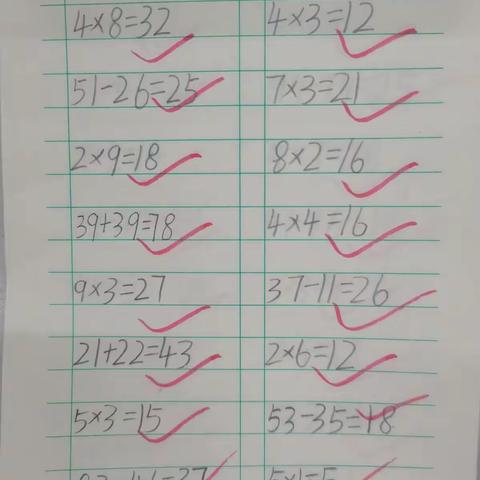 4×8=32 4×3=12
51-26=25 7×3=21
2×9=18 8×2=16
39+39=78 4×4=16
9×3=27 37-11=26
21+22=43 2×6=12
5×3=15 53-35=18
=37 5×1=5